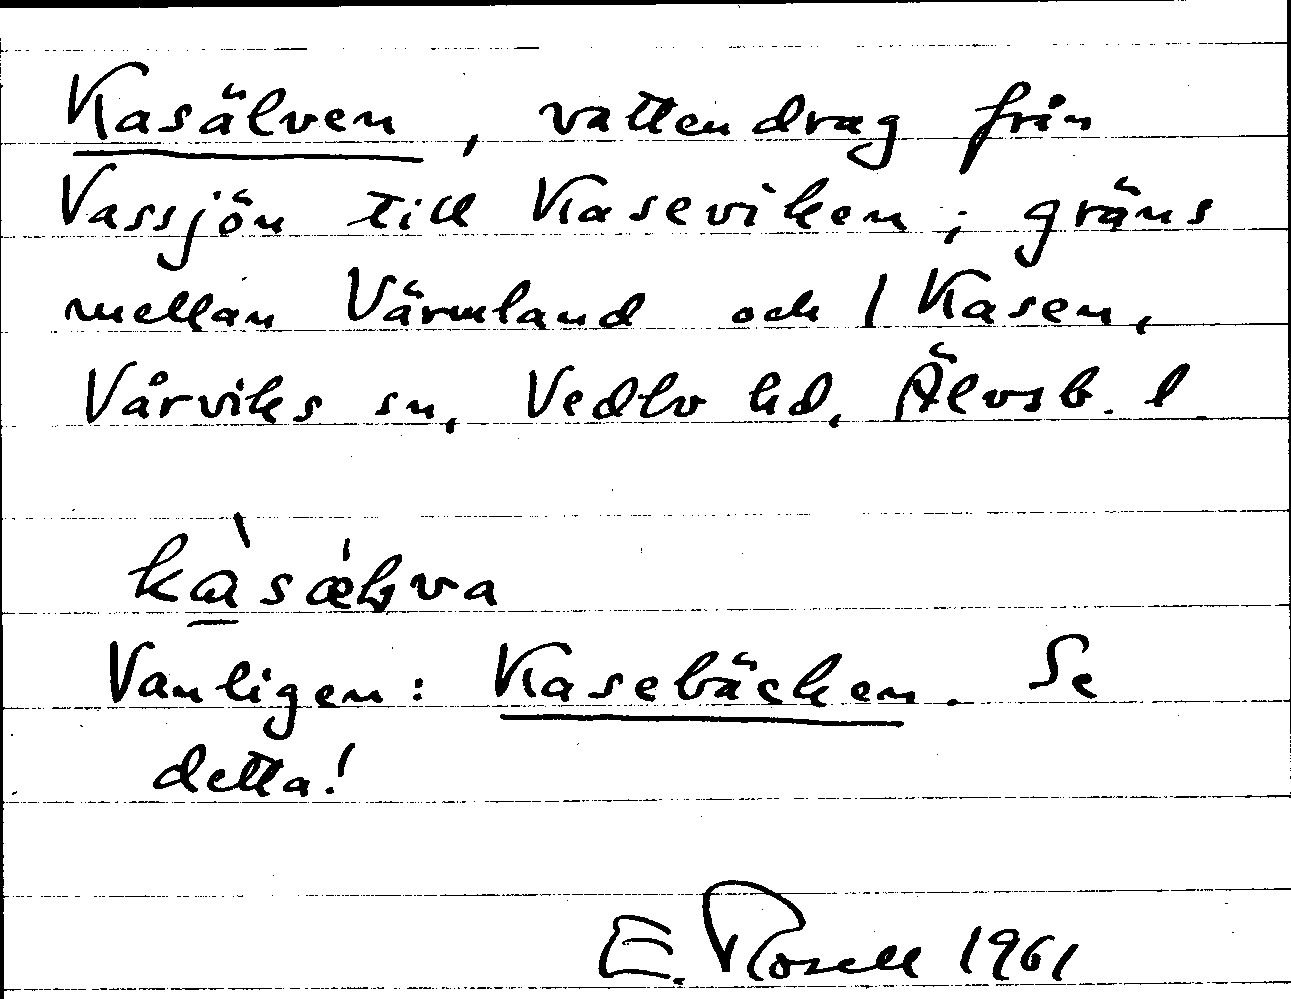 Kasälven, vattendrag från
Vassjön till Kaseviken; gräns
mellan Värmland och 1 Kasen,
Vårviks sn, Vedbo hd, Älvsb. l.
Vanligen: Kasebäcken. Se
detta!
E. Rosell 1961